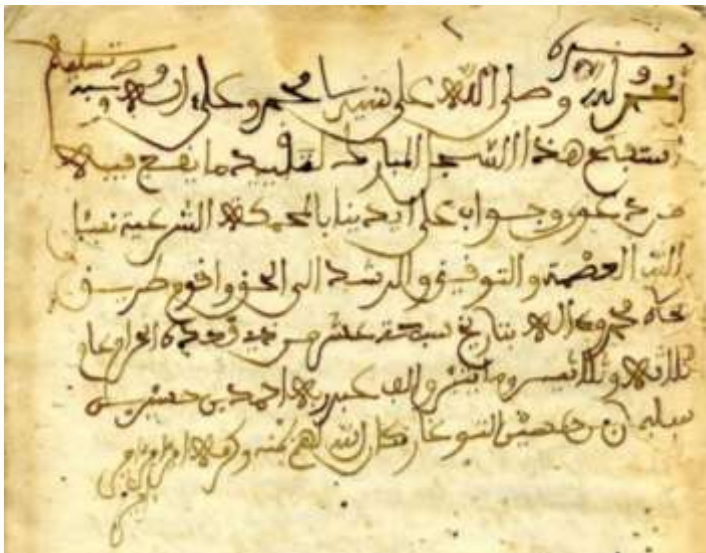 الحمد لله وصلى الله على نبينا محمد وعلى اله وصحبه
استفتح هذا السجل المبارك لتقييد ما يقع فيه
من دعوى وجواب على ايدينا بالمحكمة الشرعية نسئل
الله العصمة والتوفيق والرشد الى الحق واقوم طريق
بجاه محمد واله بتاريخ ستة عشر من ذي قعدة الحرام عام
ثلاثة وثلاثين ومائتين والف عبد ربه احمد بن حسين بن
كان الله لهم بمنه وكرمه امين